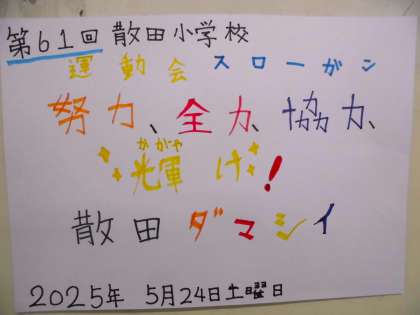 第61回 散田小学校
運動会スローガン
努力、全力、協力、
かがや
光輝け!
散田ダマシイ
2025年 5月24日土曜日